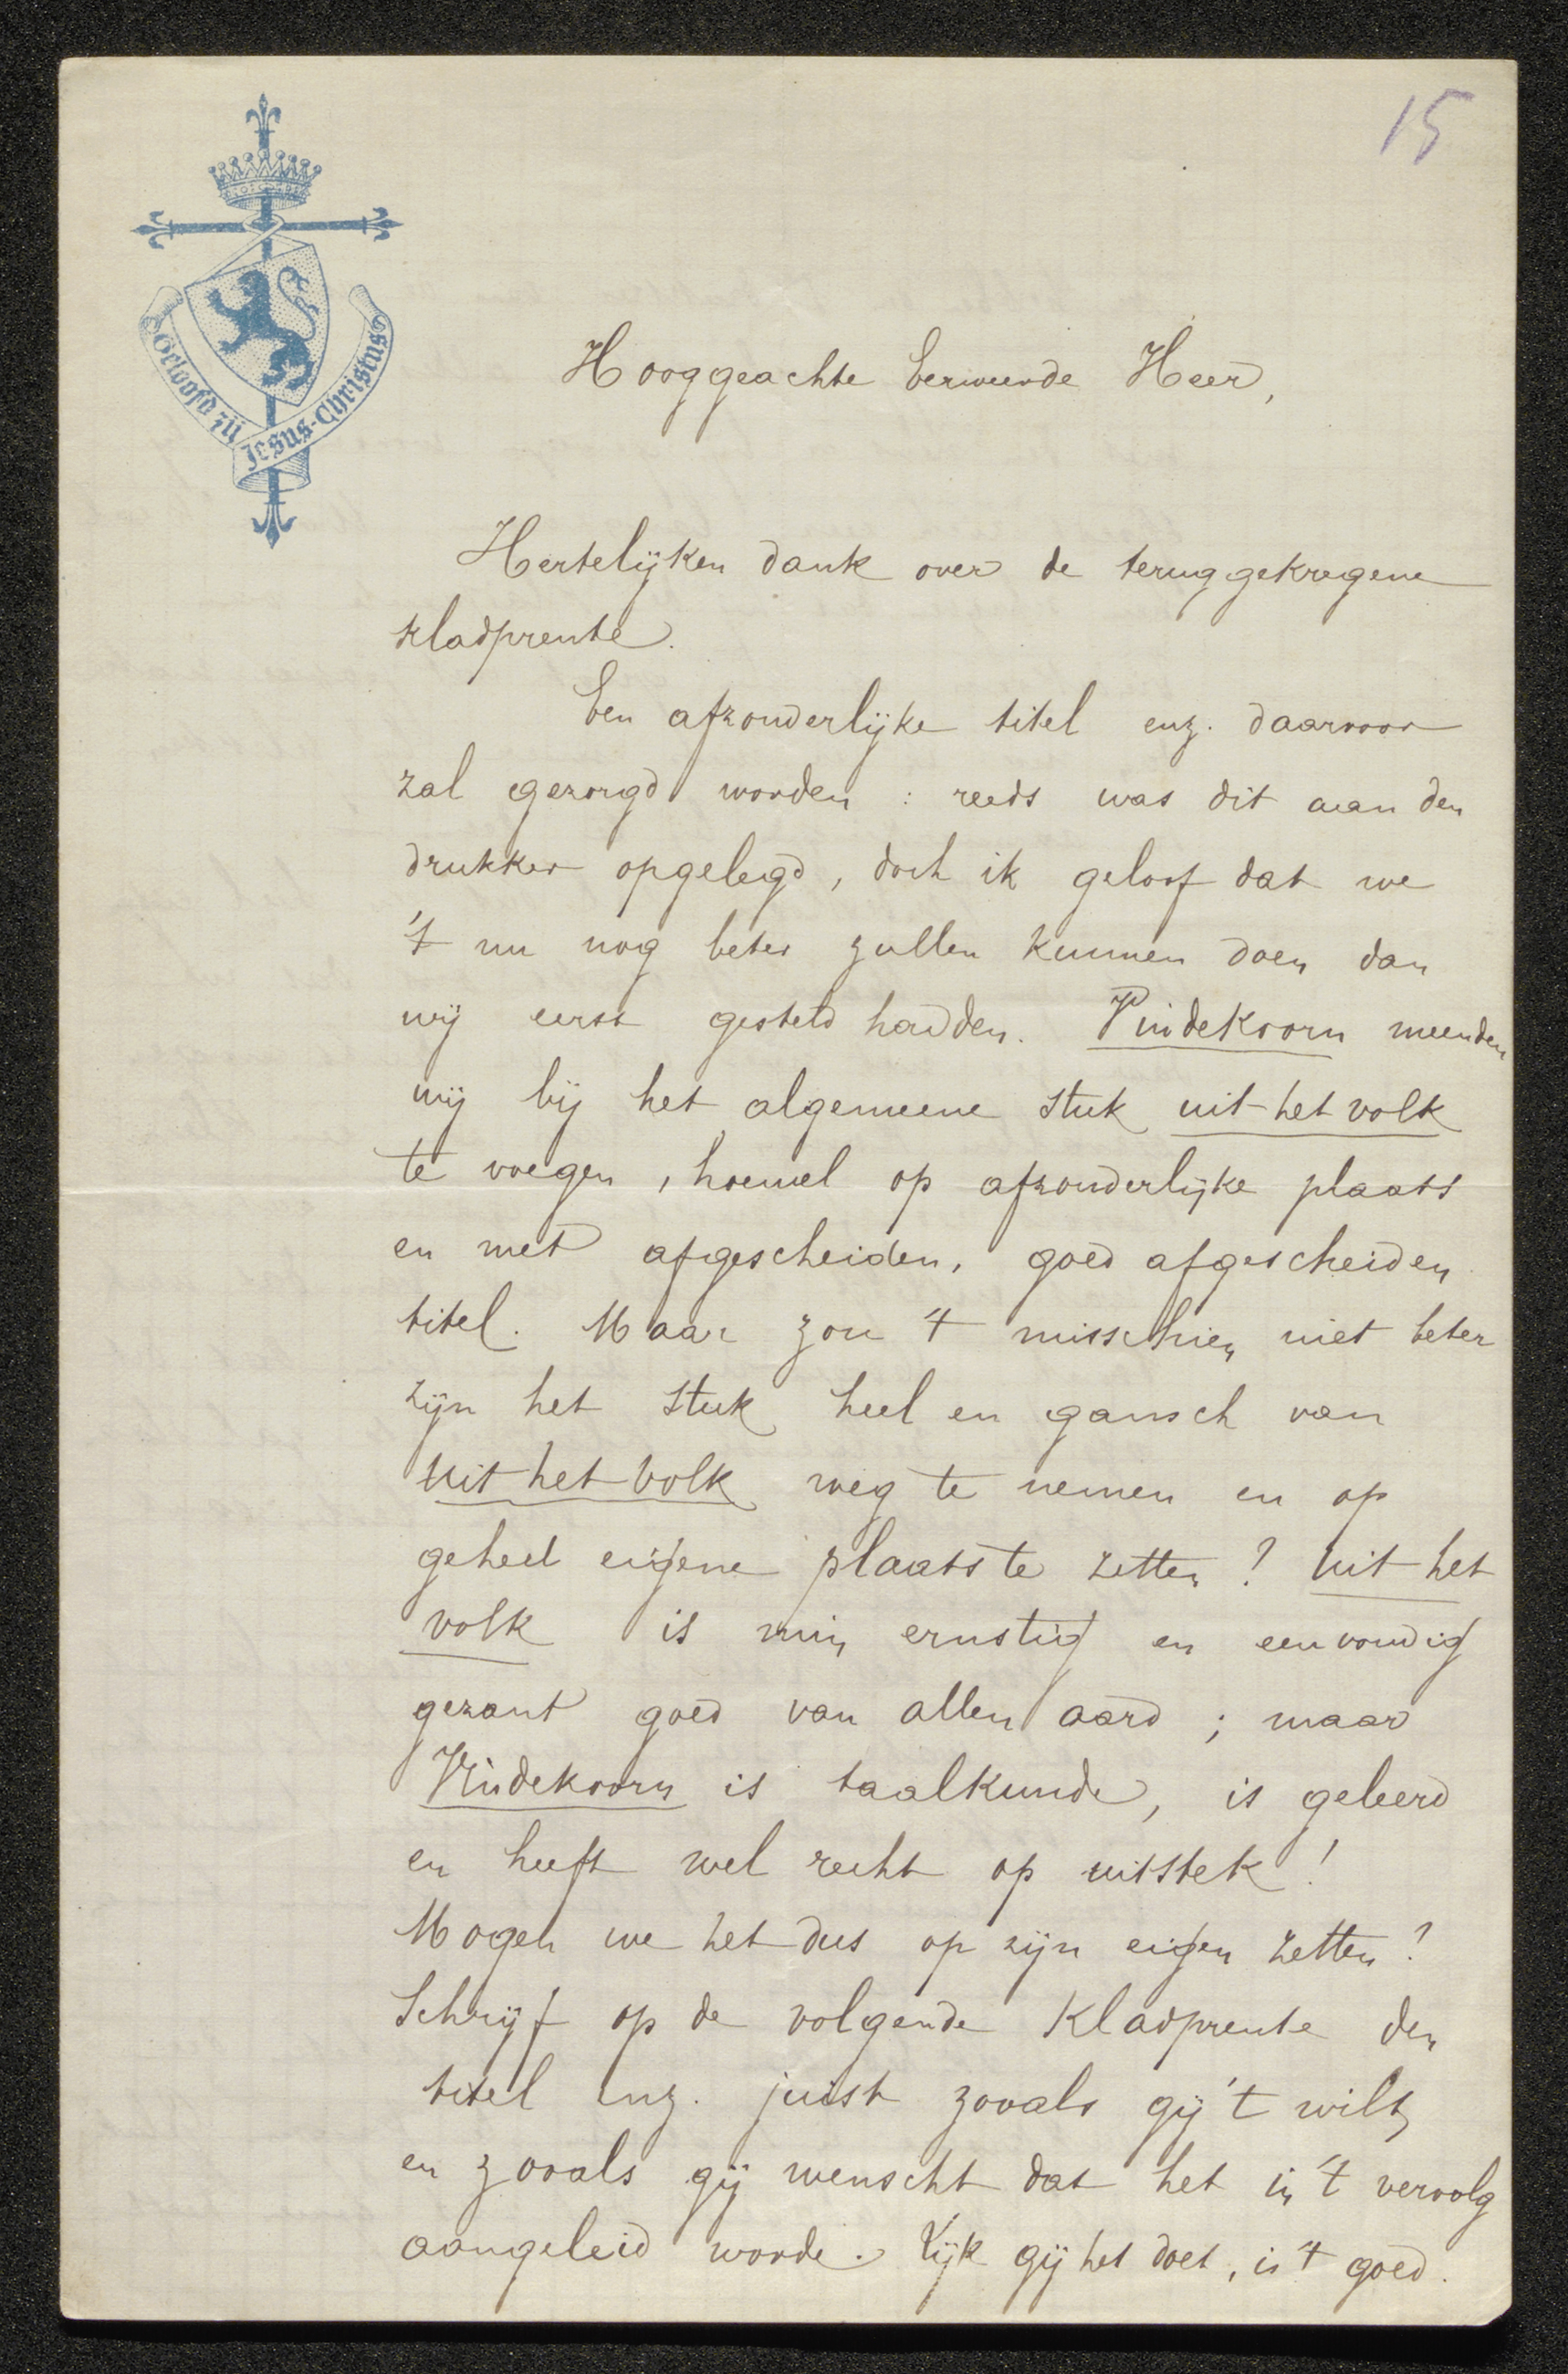 15
Geloofd zij Jesus-Christus
Hooggeachte Eerweerde Heer,
Hertelijken dank over de teruggekregene
kladprente.
Een afzonderlijke titel enz. daarvoor
zal gezorgd worden : reeds was dit aan den
drukker opgelegd, doch ik geloof dat we
't nu nog beter zullen kunnen doen dan
wij eerst gesteld hadden. Vindekoorn meenden
wij bij het algemeene stuk uit het volk
te voegen, hoewel op afzonderlijke plaats
en met afgescheiden, goed afgescheiden
titel. Maar zou 't misschien niet beter
zijn het stuk heel en gansch van
Uit het Volk weg te nemen en op
geheel eigene plaats te zetten ? Uit het
volk is min ernstig en eenvoudig
gezant goed van allen aard ; maar
Vindekoorn is taalkunde, is geleerd
en heeft wel recht op uitstek !
Mogen we het dus op zijn eigen zetten ?
Schrijf op de volgende kladprente den
titel enz. juist zooals gij 't wilt
en zooals gij wenscht dat het in 't vervolg
aangeleid worde. Lijk gij het doet, is 't goed.